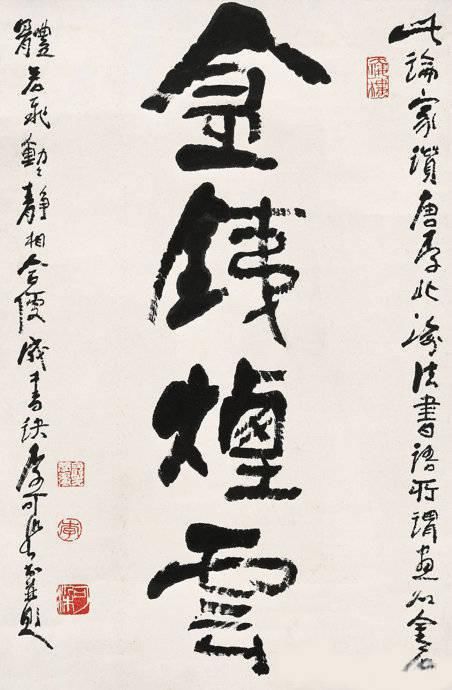 此論家讚唐李北海法書語所謂畫如金石
金銕煙雲
體若飛動動靜相合便成書訣李可染並題